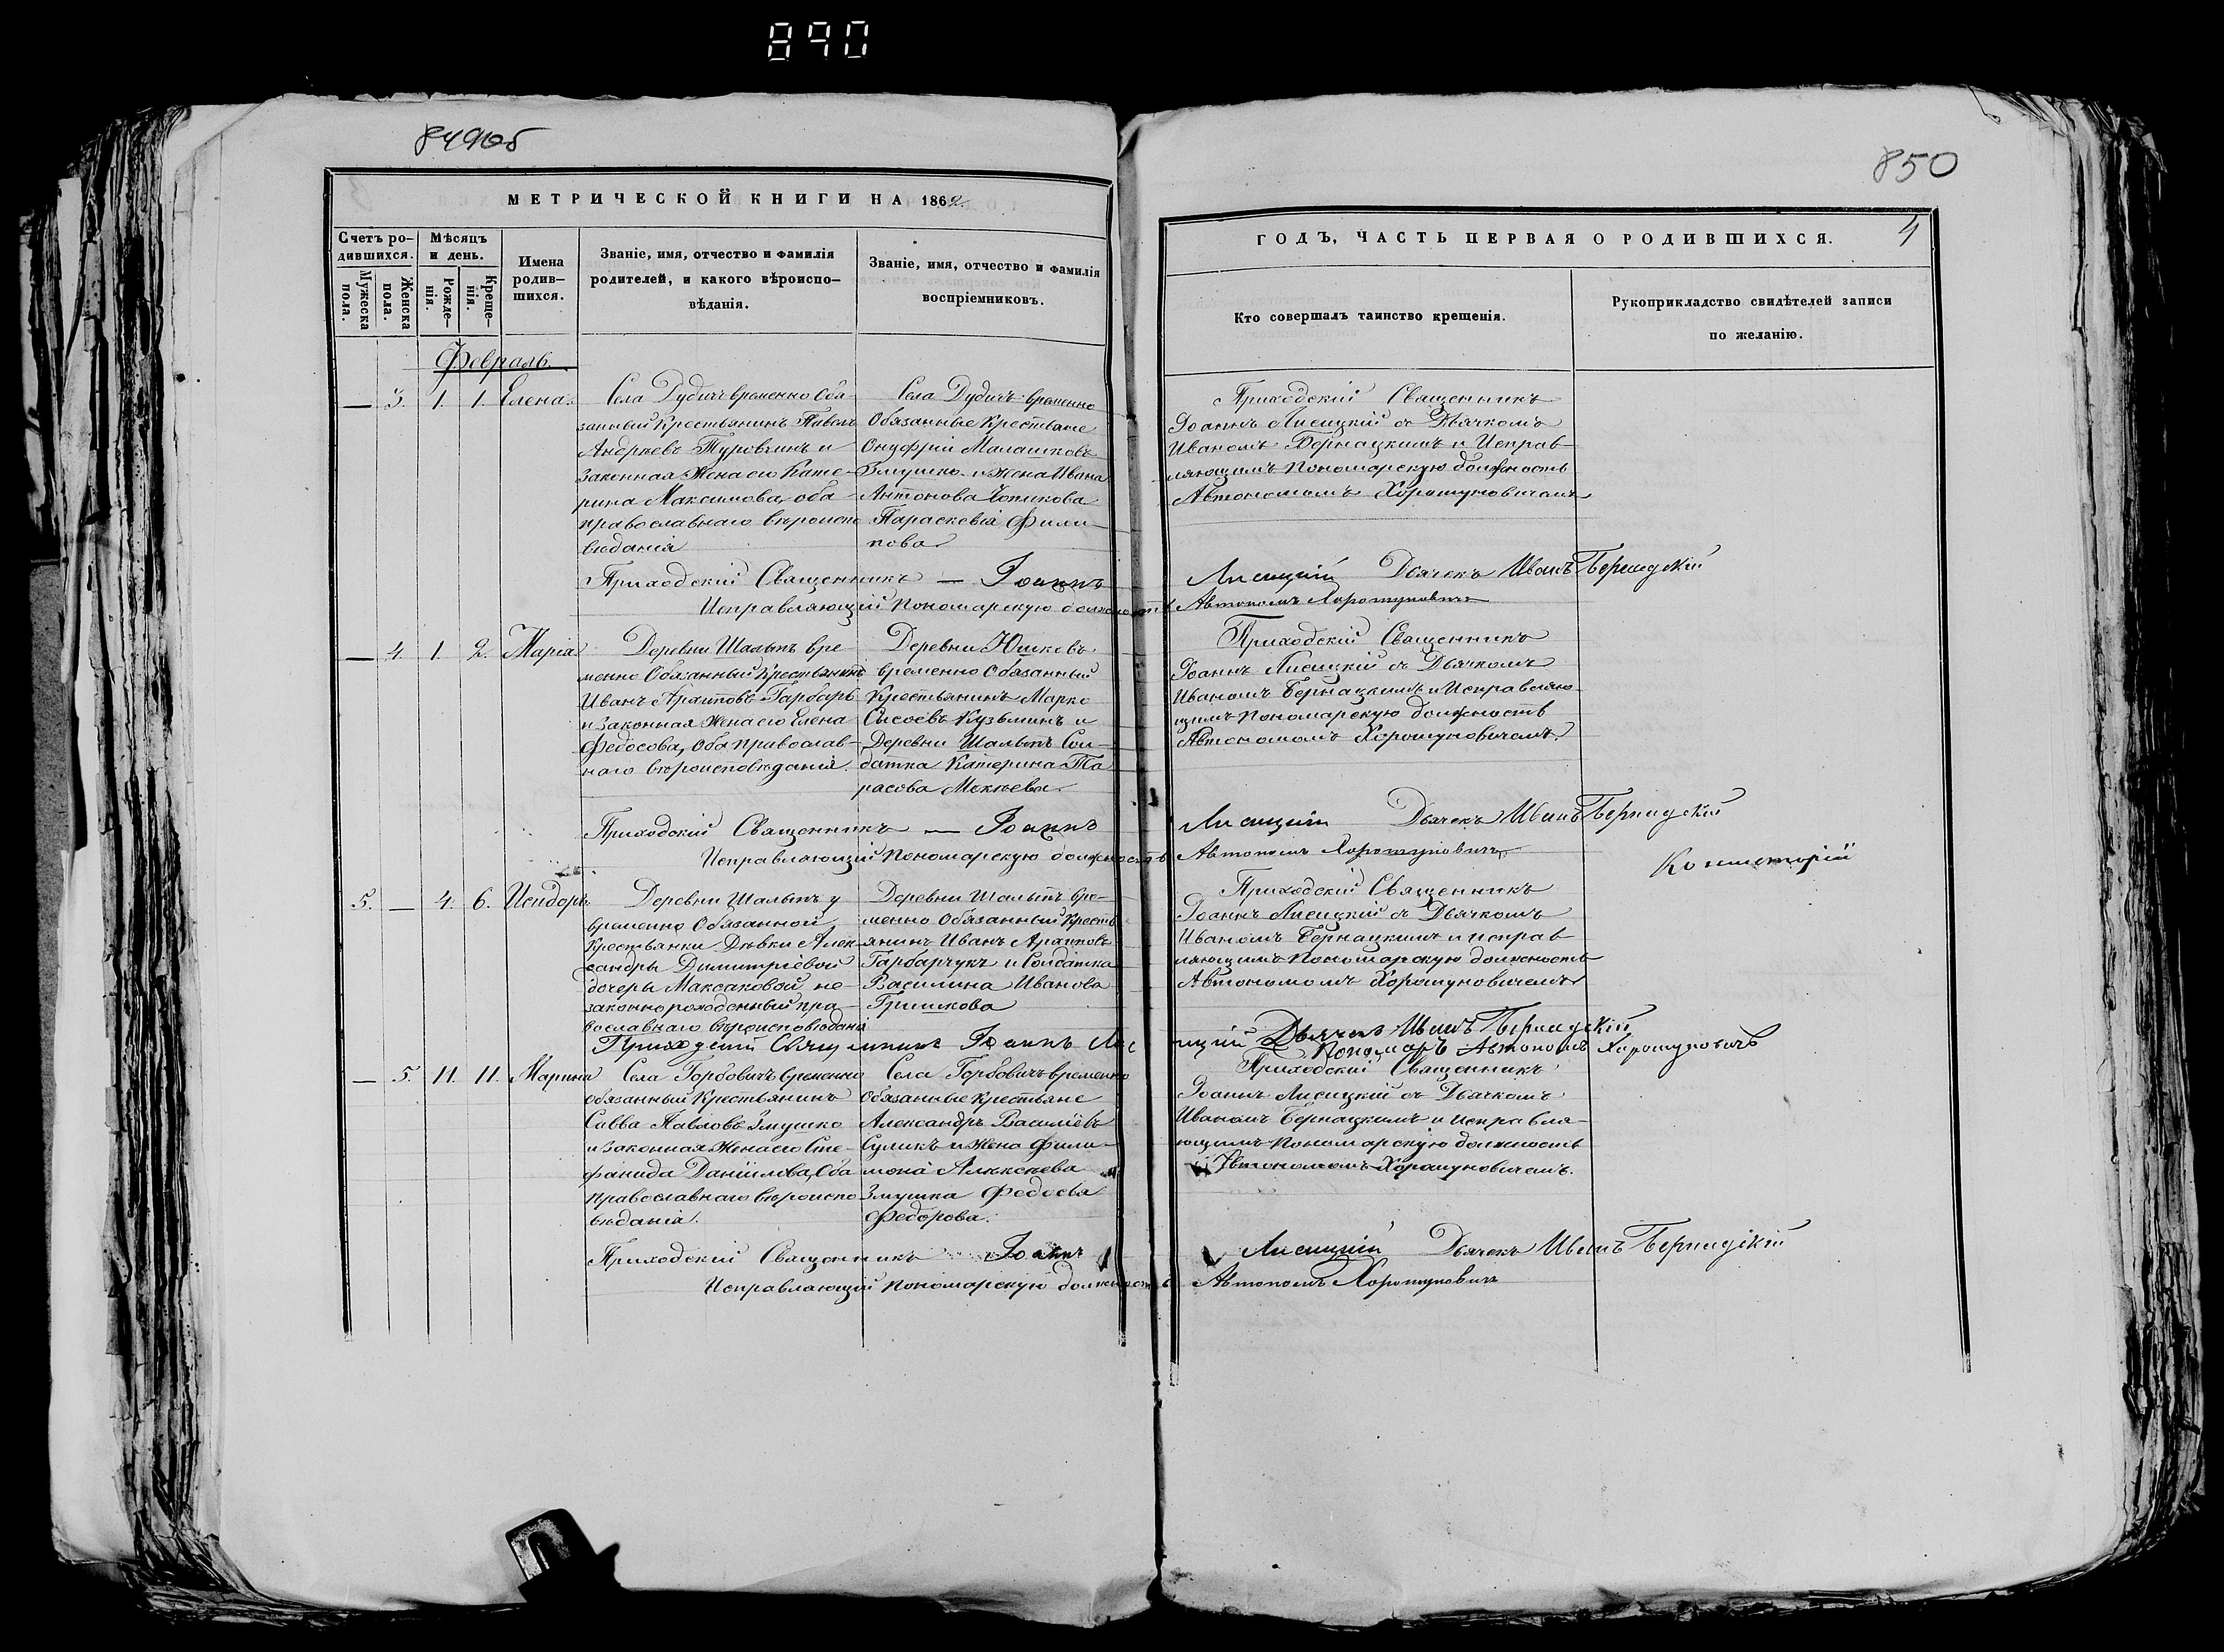 890
849об
850
МЕТРИЧЕСКОЙ КНИГИ НА 1862.
Счетъ ро-
дившихся.
Мужеска
пола.
Женска
пола.
Мѣсяцъ
и день.
Рожде-
нія.
Креще-
нія.
Имена
родив-
шихся.
Званіе, имя, отчество и фамилія
родителей, и какого вѣроиспо-
вѣданія.
Званіе, имя, отчество и фамилія
воспріемниковъ.
ГОДЪ, ЧАСТЬ ПЕРВАЯ О РОДИВШИХСЯ.
4
Кто совершалъ таинство крещенія.
Рукоприкладство свидѣтелей записи
по желанію.
Февраль.
— 3. 1. 1. Елена.
Села Дудичъ временно Обя-
занный Крестьянинъ Павелъ
Андреевъ Туровчинъ и
законная Жена его Кате-
рина Максимова, оба
православнаго вѣроиспо
вѣданія
Села Дудичъ временно
Обязанные Крестьяне
Онуфрій Малашковъ
Змушко и жена Ивана
Антонова
Параскевія Фили-
пова
Приходскій Священникъ
Іоаннъ Лисицкій съ Дьячкомъ
Иваномъ Бернацкимъ и Исправ-
ляющимъ Пономарскую должность
Автономомъ Хорошуновичемъ
Приходскій Священникъ — Іоаннъ Лисицкій Дьячекъ Иванъ Бернадскій
Исправляющій Пономарскую должность Автономъ Хорошуновичъ
— 4. 1. 2. Марія
Деревни Шалыпъ вре
менно Обязанный Крестьянинъ
Иванъ Архиповъ Гарбаръ
и Законная Жена его Елена
Федосова, Оба православ-
наго вѣроисповѣданія.
Деревни Юшковъ
временно Обязанный
Крестьянинъ Марко
Сысоевъ Кузьминъ и
Деревни Шалыпъ Сол-
датка Катерина Та
расова Мокѣева
Приходскій Священникъ
Іоаннъ Лисицкій съ Дьячкомъ
Иваномъ Бернацкимъ и Исправляю
щимъ Пономарскую должность
Автономомъ Хорошуновичемъ.
Приходскій Священникъ — Іоаннъ Лисицкій Дьячекъ Иванъ Бернадскій
Исправляющій Пономарскую должность Автономъ Хорошуновичъ
5. — 4. 6. Исидоръ
Деревни Шалыпъ у
временно Обязанной
Крестьянки Дѣвки Алек-
сандры Димитріевой
дочеры Максаковой, не-
законнорожденный пра-
вославнаго вѣроисповѣданія
Деревни Шалыпъ вре-
менно Обязанный Кресть
янинъ Иванъ Архиповъ
Гарбарчукъ и Солдатка
Василина Иванова
Гришкова
Приходскій Священникъ
Іоаннъ Лисицкій съ Дьячкомъ
Иваномъ Бернацкимъ и исправ
ляющимъ Пономарскую должность
Автономомъ Хорошуновичемъ
Приходскій Священникъ Іоаннъ Лисицкій Дьячекъ Иванъ Бернадскій
Пономаръ Автономъ Хорошуновичъ
— 5. 11. 11. Марина
Села Горбовичъ временно
обязанный Крестьянинъ
Савва Павловъ Змушко
и Законная Жена его Сте-
фанида Даніилова, Оба
православнаго вѣроиспо
вѣданія.
Села Горбовичъ временно
Обязанные крестьяне
Александръ Василіевъ
Суликъ и Жена Фили-
мона Алексѣева
Змушка Федосья
Федорова.
Приходскій Священникъ
Іоаннъ Лисицкій съ Дьячкомъ
Иваномъ Бернацкимъ и исправля-
ющимъ Пономарскую должность
Автономомъ Хорошуновичемъ.
Приходскій Священникъ Іоаннъ Лисицкій Дьячекъ Иванъ Бернадскій
Исправляющій Пономарскую должность Автономъ Хорошуновичъ